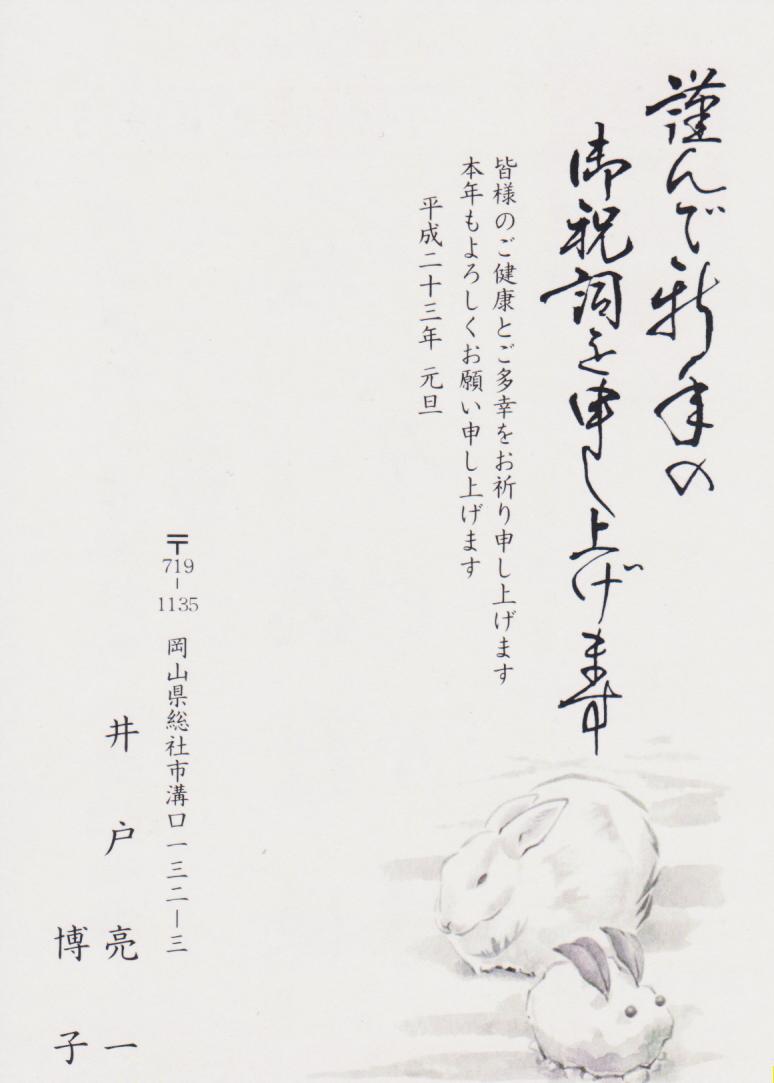 謹んで新年の
御祝詞を申し上げます
皆様のご健康とご多幸をお祈り申し上げます
本年もよろしくお願い申し上げます
平成二十三年 元旦
〒719-1135 岡山県総社市溝口一三二―三
井戸亮一
博子